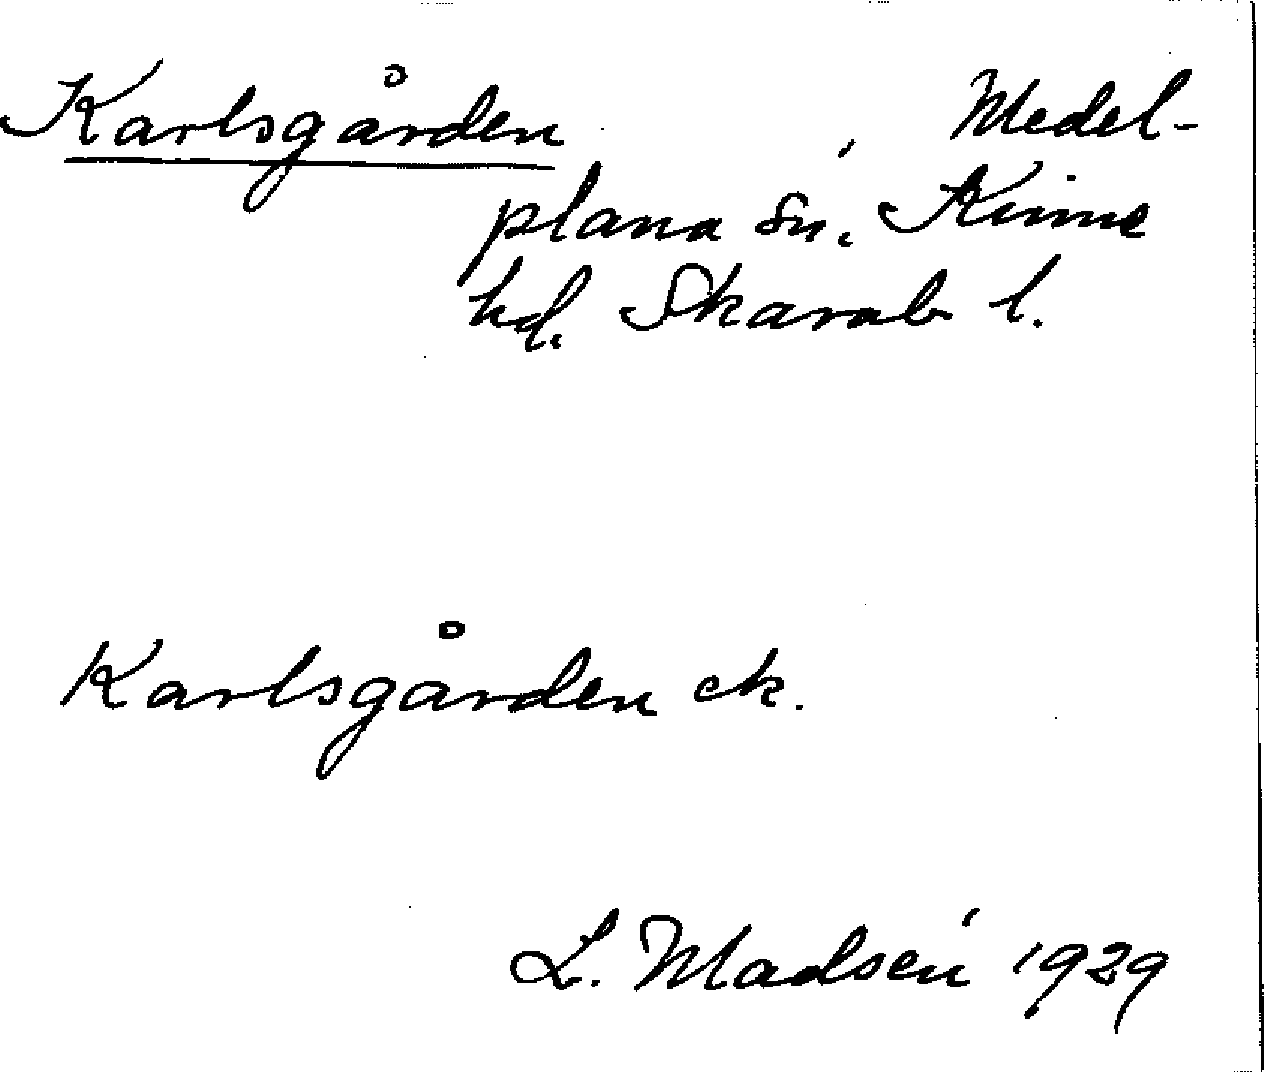 Karlsgården Medel-
plana sn. Kinne
hd. Skarab. l.
Karlsgården ek.
L. Madsén 1929